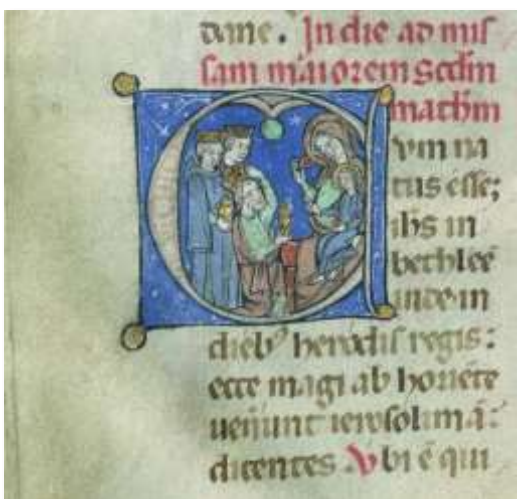 dane. In die ad mis
sam maiorem scdm
mathm
Cum na
tus esse;
ihs in
bethleē
iude in
dieb᾽ herodis regis:
ecce magi ab horiēte
uenūnt ierosolimā:
dicentes Vbi ē qui